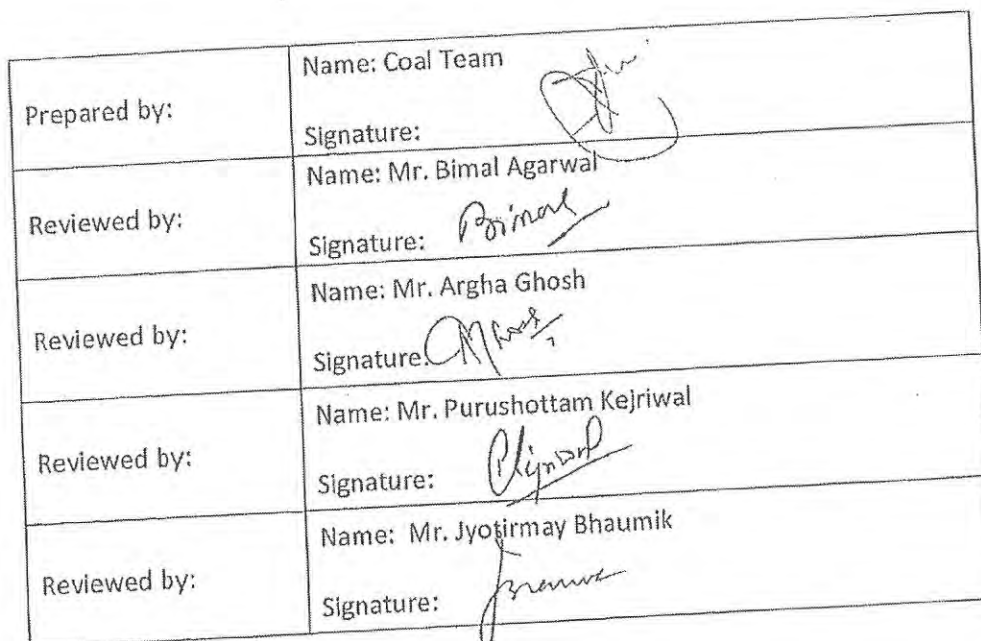 Prepared by:
Name: Coal Team
Signature:
Reviewed by:
Name: Mr. Bimal Agarwal
Signature: Bimal
Reviewed by:
Name: Mr. Argha Ghosh
Signature:
Reviewed by:
Name: Mr. Purushottam Kejriwal
Signature:
Reviewed by:
Name: Mr. Jyotirmay Bhaumik
Signature: